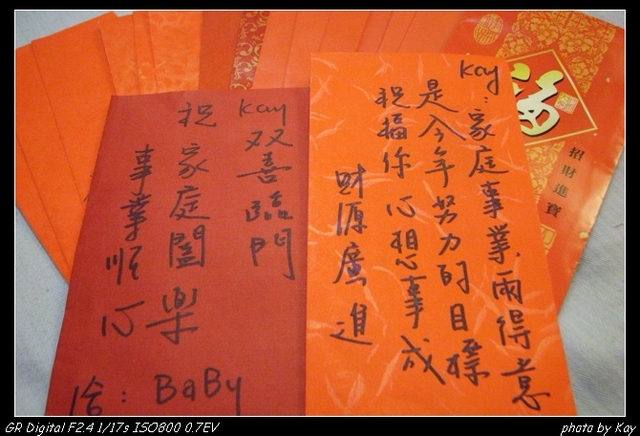 Kay
双喜臨門
祝家庭闔樂
事業順心
BaBy
Kay:家庭事業兩得意
是今年努力的目標
祝福你心想事成
財源廣進
福
招財進寶
GR Digital F2.4 1/17s ISO800 0.7EV
photo by Kay